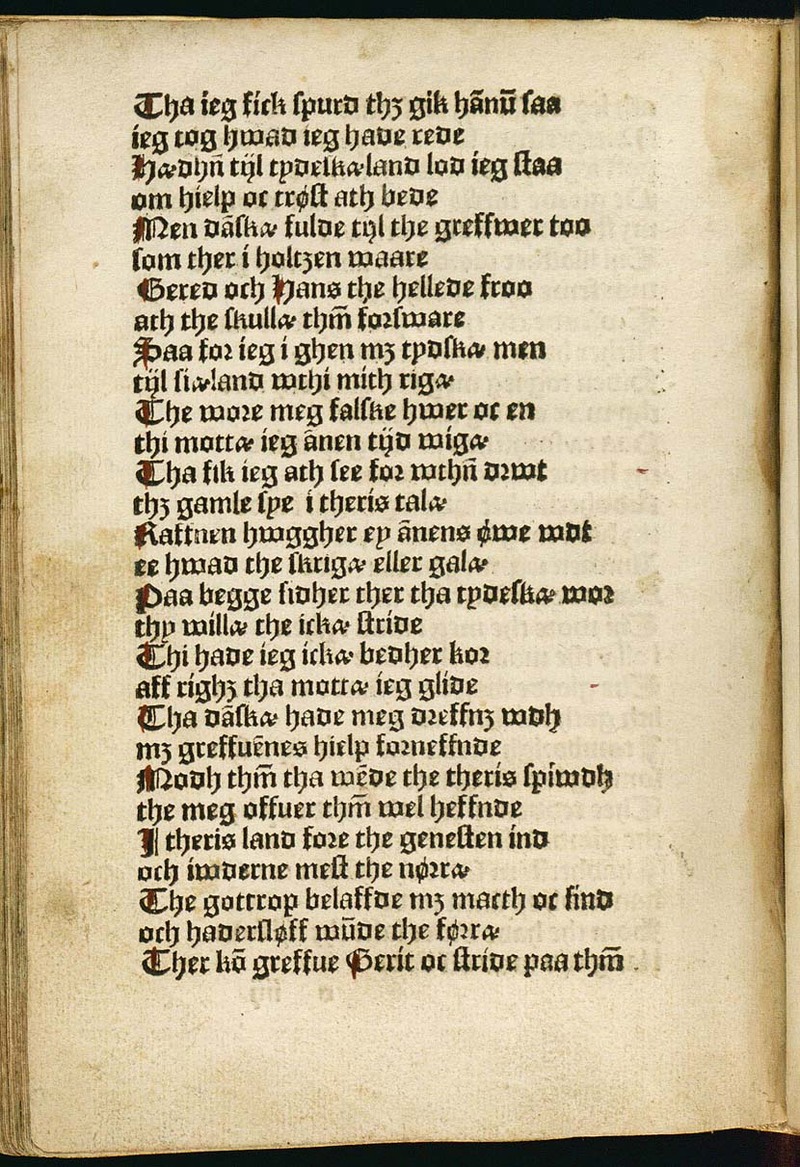 Tha ieg fick spurd thꝫ gik hānū saa
ieg tog hwad ieg hade rede
Hædhn̄ tijl tydelskæland lod ieg staa
om hielp oc trøst ath bede
Men dāskæ fulde tijl the greffwer too
som ther i holtzen waare
Gered och Hans the hellede froo
ath the skullæ thm̄ forsware
Paa for ieg i ghen mꝫ tydskæ men
tijl siæland wthi mith rigæ
The wore meg falske hwer oc en
thi mottæ ieg ānen tijd wigæ
Tha fik ieg ath see for wthn̄ drwt
thꝫ gamle spe i theris talæ
Raffnen hwggher ey ānens øwe wdt
ee hwad the skrigæ eller galæ
Paa begge sidher ther tha tydeskæ wor
thy willæ the ickæ stride
Thi hade ieg ickæ bedher kor
aff righꝫ tha mottæ ieg glide
Tha dāskæ hade meg dreffnꝫ wdh
mꝫ greffuēnes hielp forneffnde
Modh thm̄ tha wēde the theris spiwdh
the meg offuer thm̄ wel heffnde
I theris land fore the genesten ind
och iwderne mest the nørræ
The gottrop belaffde mꝫ macth oc sind
och hadersløff wūde the førræ
Ther kō greffue Gerit oc stride paa thm̄ .